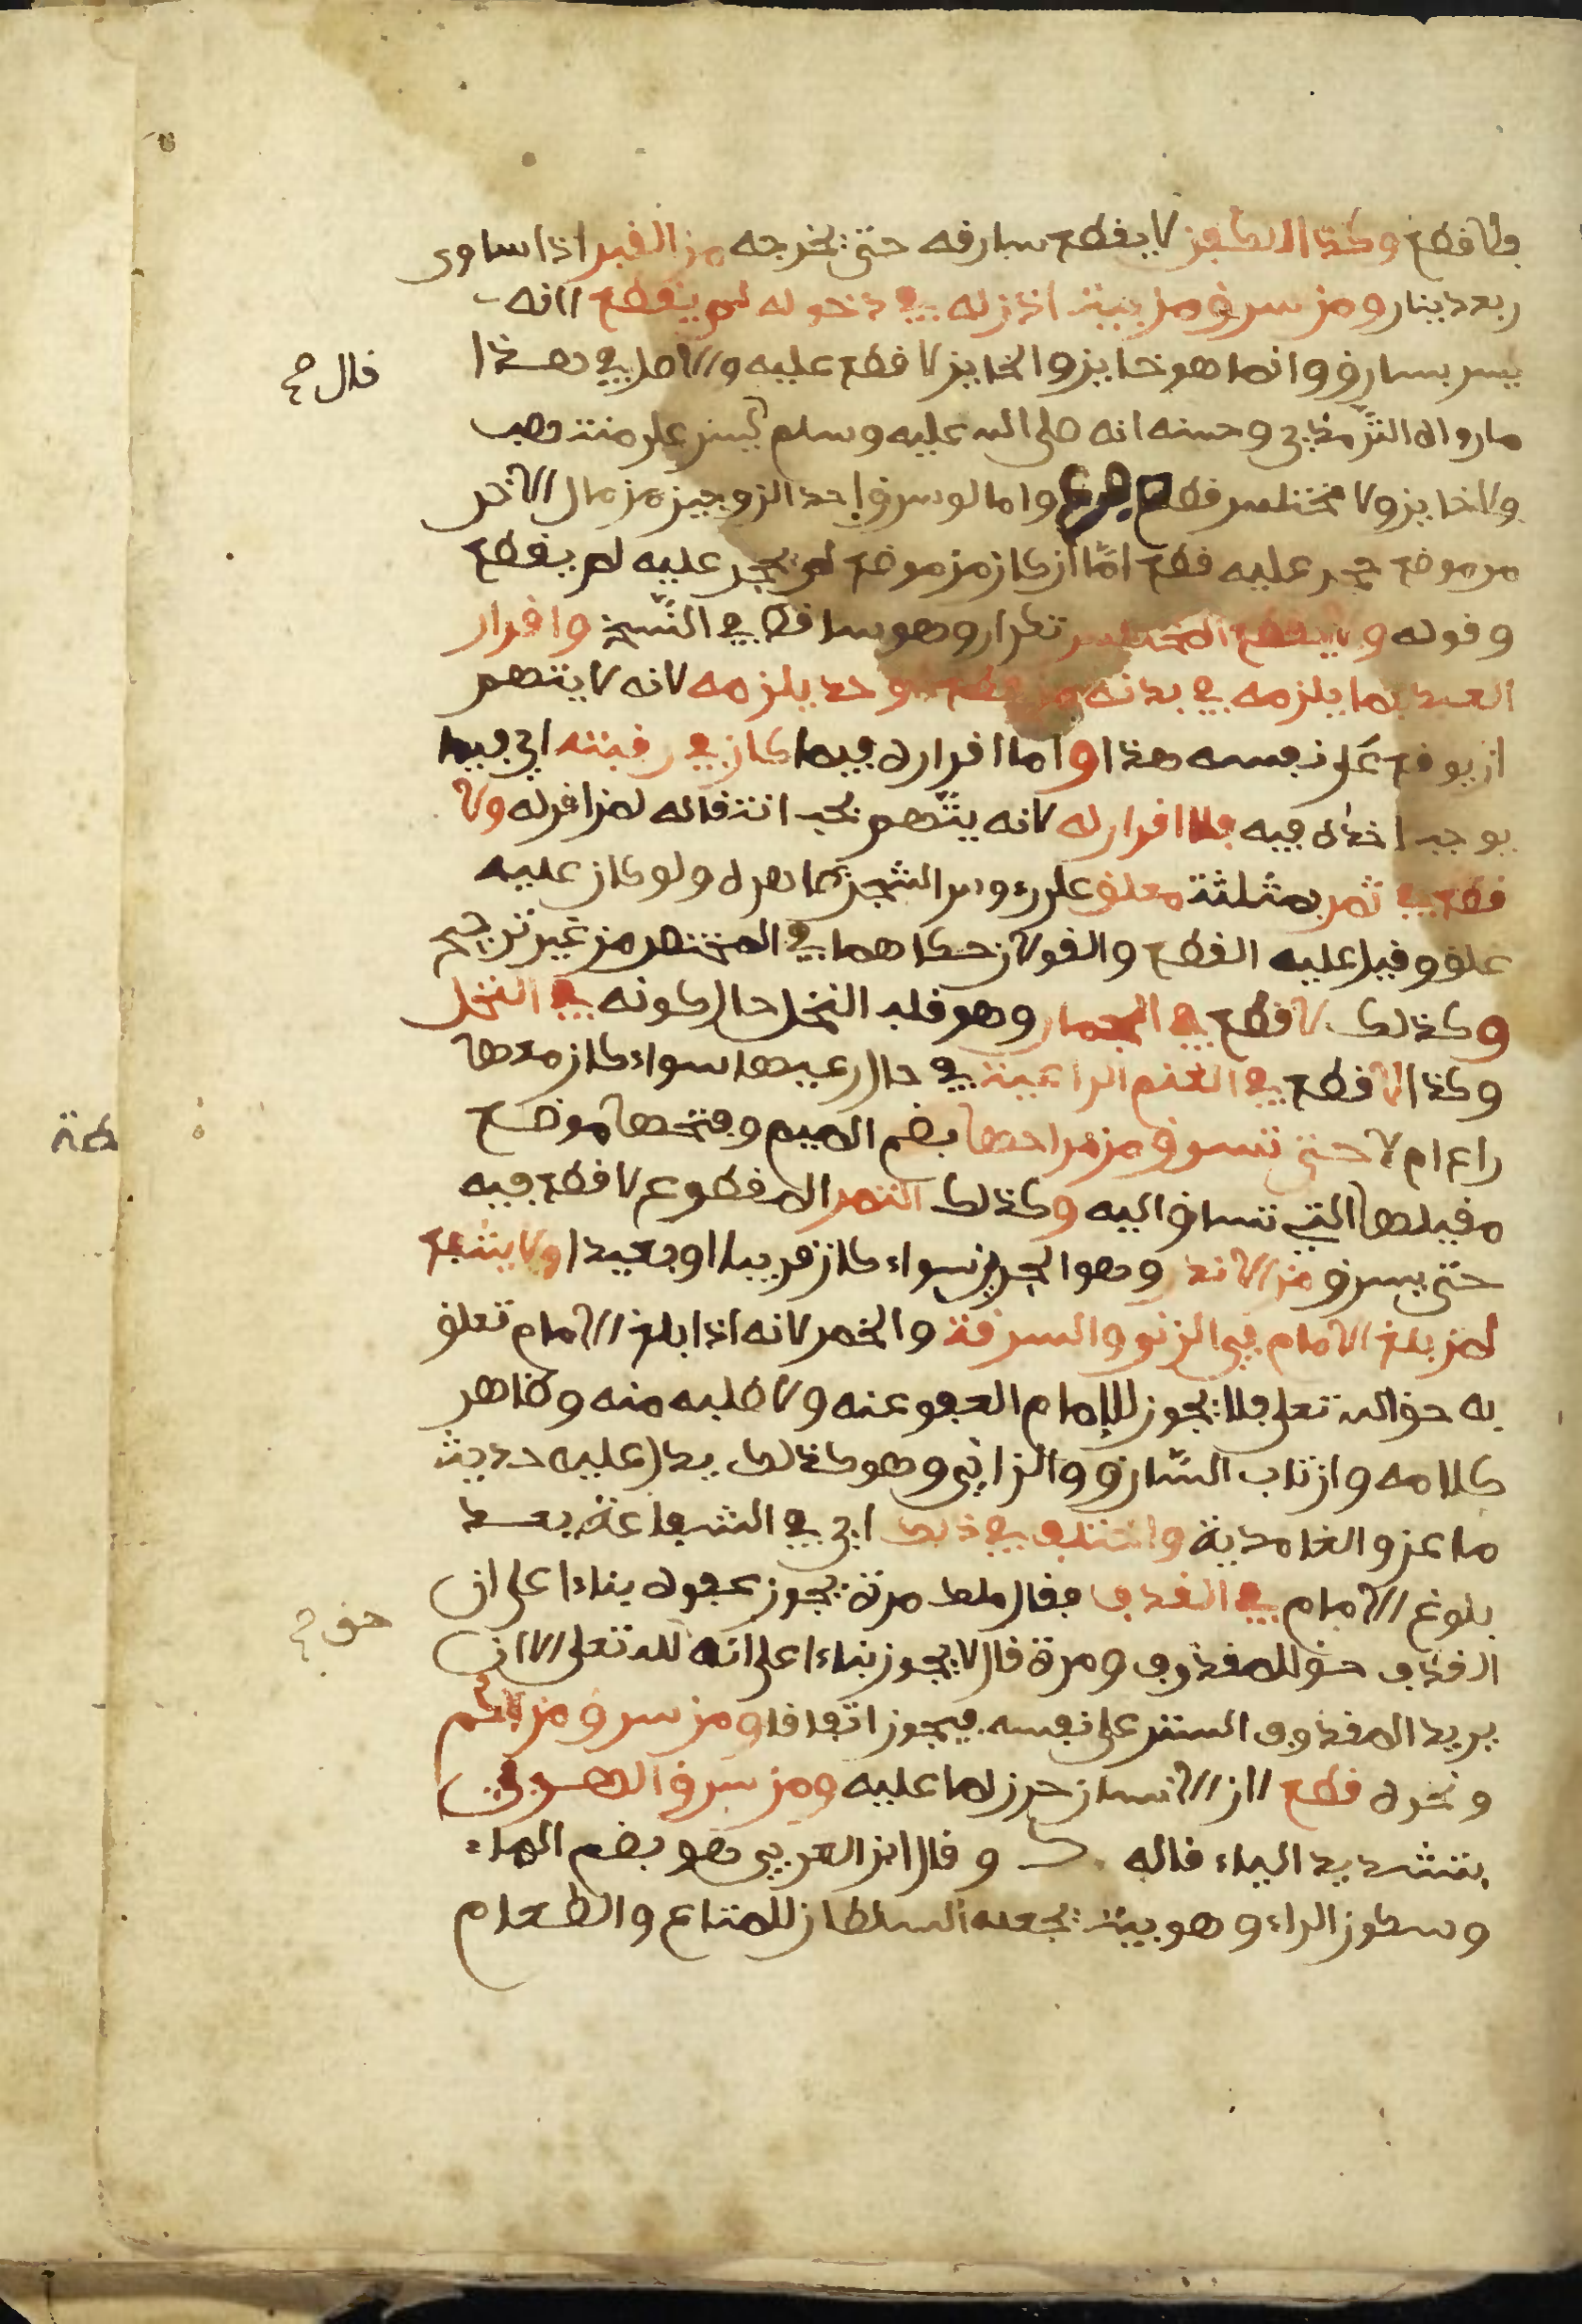 فلا قطع وكذا الكفن لا يقطع سارقه حتى يخرجه من القبر اذا ساوى
ربع دينار ومن سرق من بيت اذن له في دخوله لم يقطع لانه
ليس بسارق وانما هو خاين والخاين لا قطع عليه والاصل في هذا
قال صح
ما رواه الترمذي وحسنه انه صلى الله عليه وسلم ليس على منتهب
ولا خاين ولا مختلس قطع واما لو سرق احد الزوجين من مال الاخر
من موضع حجر عليه قطع امّا ان كان من موضع لم يحجر عليه لم يقطع
وقوله ولا يقطع المختلس تكرار وهو ساقط في النّسخ واقرار
العبد بما يلزمه في بدنه من قطع او حد يلزمه لانه لا يتهم
ان يوقع على نفسه هذا واما اقراره فيما كان في رقبته اي فيما
يوجب اخذه فيه فلا اقرار له لانه يتّهم بحب انتقاله لمن اقر له ولا
قطع في ثمر بمثلثة معلق على رءوس الشجر ظاهره ولو كان عليه
غلق وقيل عليه القطع والقولان حكاهما في المختصر من غير ترجيح
وكذلك لا قطع في الجمار وهو قلب النخل حال كونه في النخل
وكذا لا قطع في الغنم الراعية في حال رعيها سواء كان معها
راع ام لا حتى تسرق من مراحها بضم الميم وفتحها موضع
مقيلها التي تساق اليه وكذلك الثمر المقطوع لا قطع فيه
حتى يسرق من الاندر وهو الجرين سواء كان قريبا او بعيدا ولا يشفع
لمن بلغ الامام في الزنى والسرقة والخمر لانه اذا بلغ الامام تعلق
به حق الله تعلى فلا يجوز للإمام العفو عنه ولا طلبه منه وظاهر
كلامه وان تاب السّارق والزاني وهو كذلك يدل عليه حديث
ماعز والغامدية واختلف في ذلك اي في الشفاعة بعد
بلوغ الامام في القذف فقال ملك مرة يجوز عفوه بناءا على ان
القذف حق للمقذوف ومرة قال لا يجوز بناءا على انه لله تعلى الا ان
حق صح
يريد المقذوف الستر على نفسه فيجوز اتفاقا ومن سرق من الكم
ونحوه قطع لان الانسان حرز لما عليه ومن سرق الهري
بتشديد الياء قاله ك وقال ابن العربي هو بضم الهاء
وسكون الراء وهو بيت يجعله السلطان للمتاع والطعام